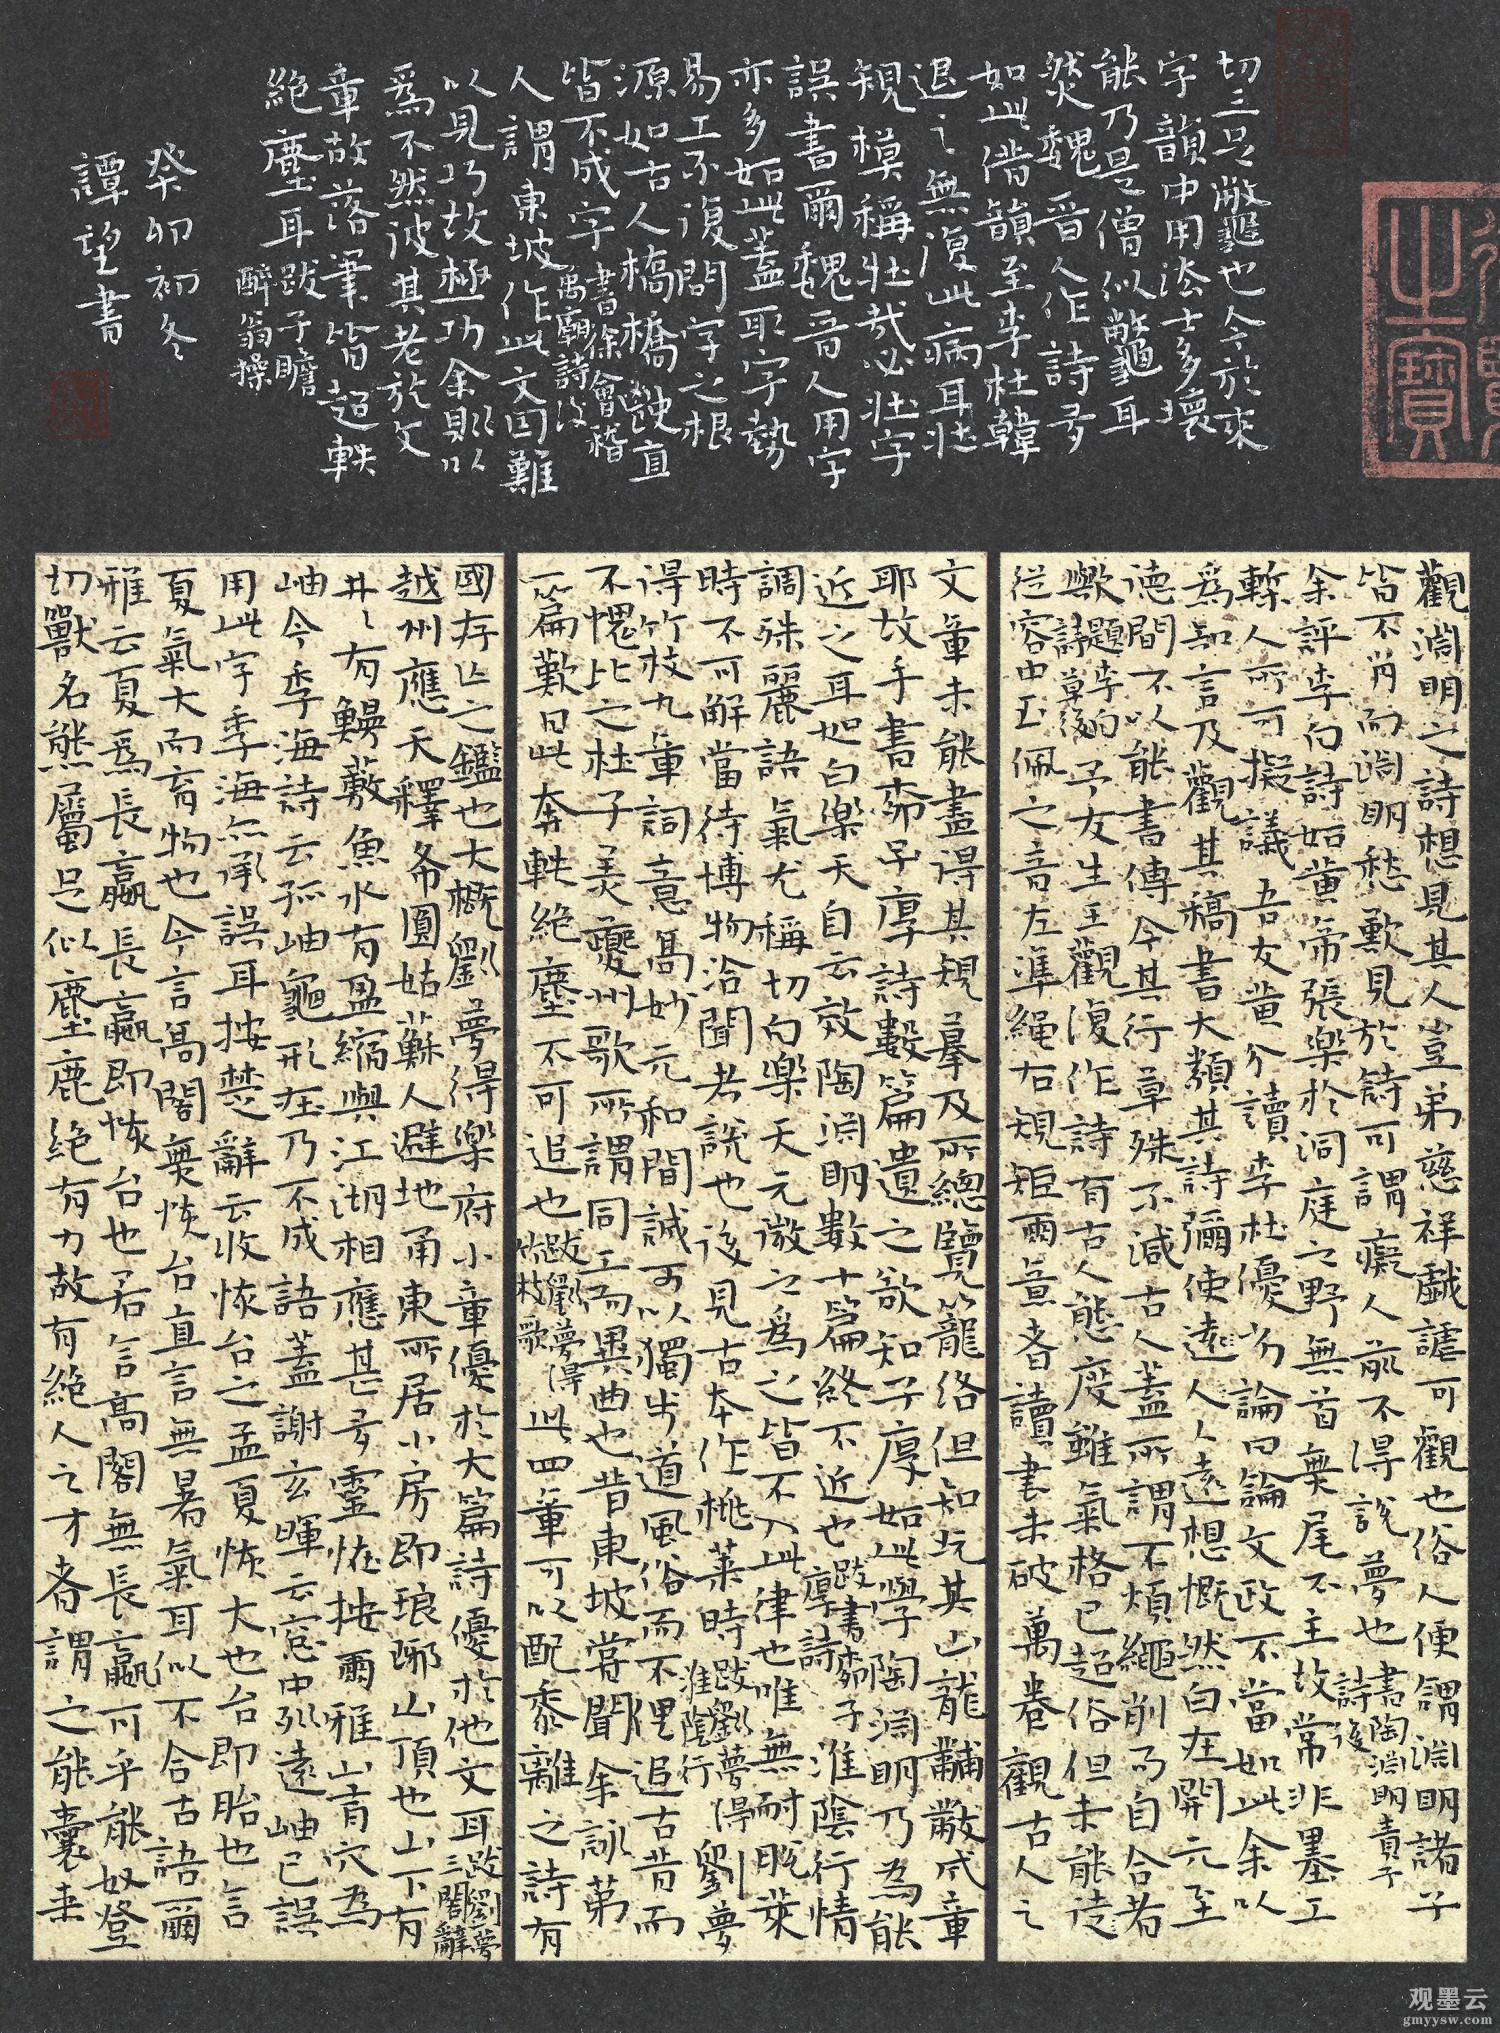 觀淵明之詩想見其人豈弟慈祥戲謔可觀也俗人便謂淵明諸子
皆不肖而淵明愁歎見於詩可謂癡人前不得說夢也書陶淵明責子詩後
余評李白詩如黃帝張樂於洞庭之野無首無尾不主故常非墨工
槧人所可擬議吾友黃介讀李杜優劣論曰論文政不當如此余以
爲知言及觀其稿書大類其詩彌使遠人人遠想慨然白在開元至
德間不以能書傳今其行草殊不減古人蓋所謂不煩繩削而自合者
歟題李白詩草後予友生王觀復作詩有古人態度雖氣格已超俗但未能從
從容中玉佩之音左準繩右規矩爾意者讀書未破萬卷觀古人之
文章未能盡得其規摹及所總覽籠絡但知玩其山龍黼黻成章
耶故手書柳子厚詩數篇遺之欲知子厚如此學陶淵明乃為能
近之耳如白樂天自云效陶淵明數十篇終不近也跋書柳子厚詩淮陰行情
調殊麗語氣尤稱切白樂天元微之爲之皆不入此律也唯無耐脫萊
時不可解當待博物洽聞者說也後見古本作桃萊時跋劉夢得淮陰行劉夢
得竹枝九章詞意高妙元和間誠可以獨步道風俗而不俚追古昔而
不愧比之杜子美夔州歌所謂同工而異曲也昔東坡嘗聞余詠第
一篇歎曰此奔軼絕塵不可追也跋劉夢得竹枝歌此四章可以配黍離之詩有
國存亡之鑑也大概劉夢得樂府小章優於大篇詩優於他文耳跋劉夢得三閣辭
越州應天釋希圓姑蘇人避地甬東所居小房即琅琊山頂也山下有
井井有鰻藪魚水有盈縮與江湖相應甚多靈怪按爾雅山有穴為
岫今季海詩云孤岫龜形在乃不成語蓋謝玄暉云窓中列遠岫已誤
用此字季海亦承誤耳按楚辭云收恢台之孟夏恢大也台即胎也言
夏氣大而育物也今言高閣無恢台直言無暑氣耳似不合古語爾
雅云夏爲長嬴長嬴即恢台也若言高閣無長嬴可乎能奴登
切獸名熊屬足似麈鹿絕有力故有絕人之才者謂之能囊来
切三足鼈也今於來
字韻中用法士多壞
能乃是僧似鼈耳
然魏晉人作詩多
如此借韻至李杜韓
退之無復此病耳壯
規模稱壯哉必壯字
誤書爾魏晉人用字
亦多如此蓋取字勢
易工不復問字之根
源如古人橋橋直
皆不成字書徐會稽禹廟詩後
人謂東坡作此文因難
以見巧故極巧余則以
爲不然彼其老於文
章故落筆皆超軼
絕塵耳跋子瞻醉翁操
癸卯初冬
譚望書
之寶
观墨云
gmyysw.com